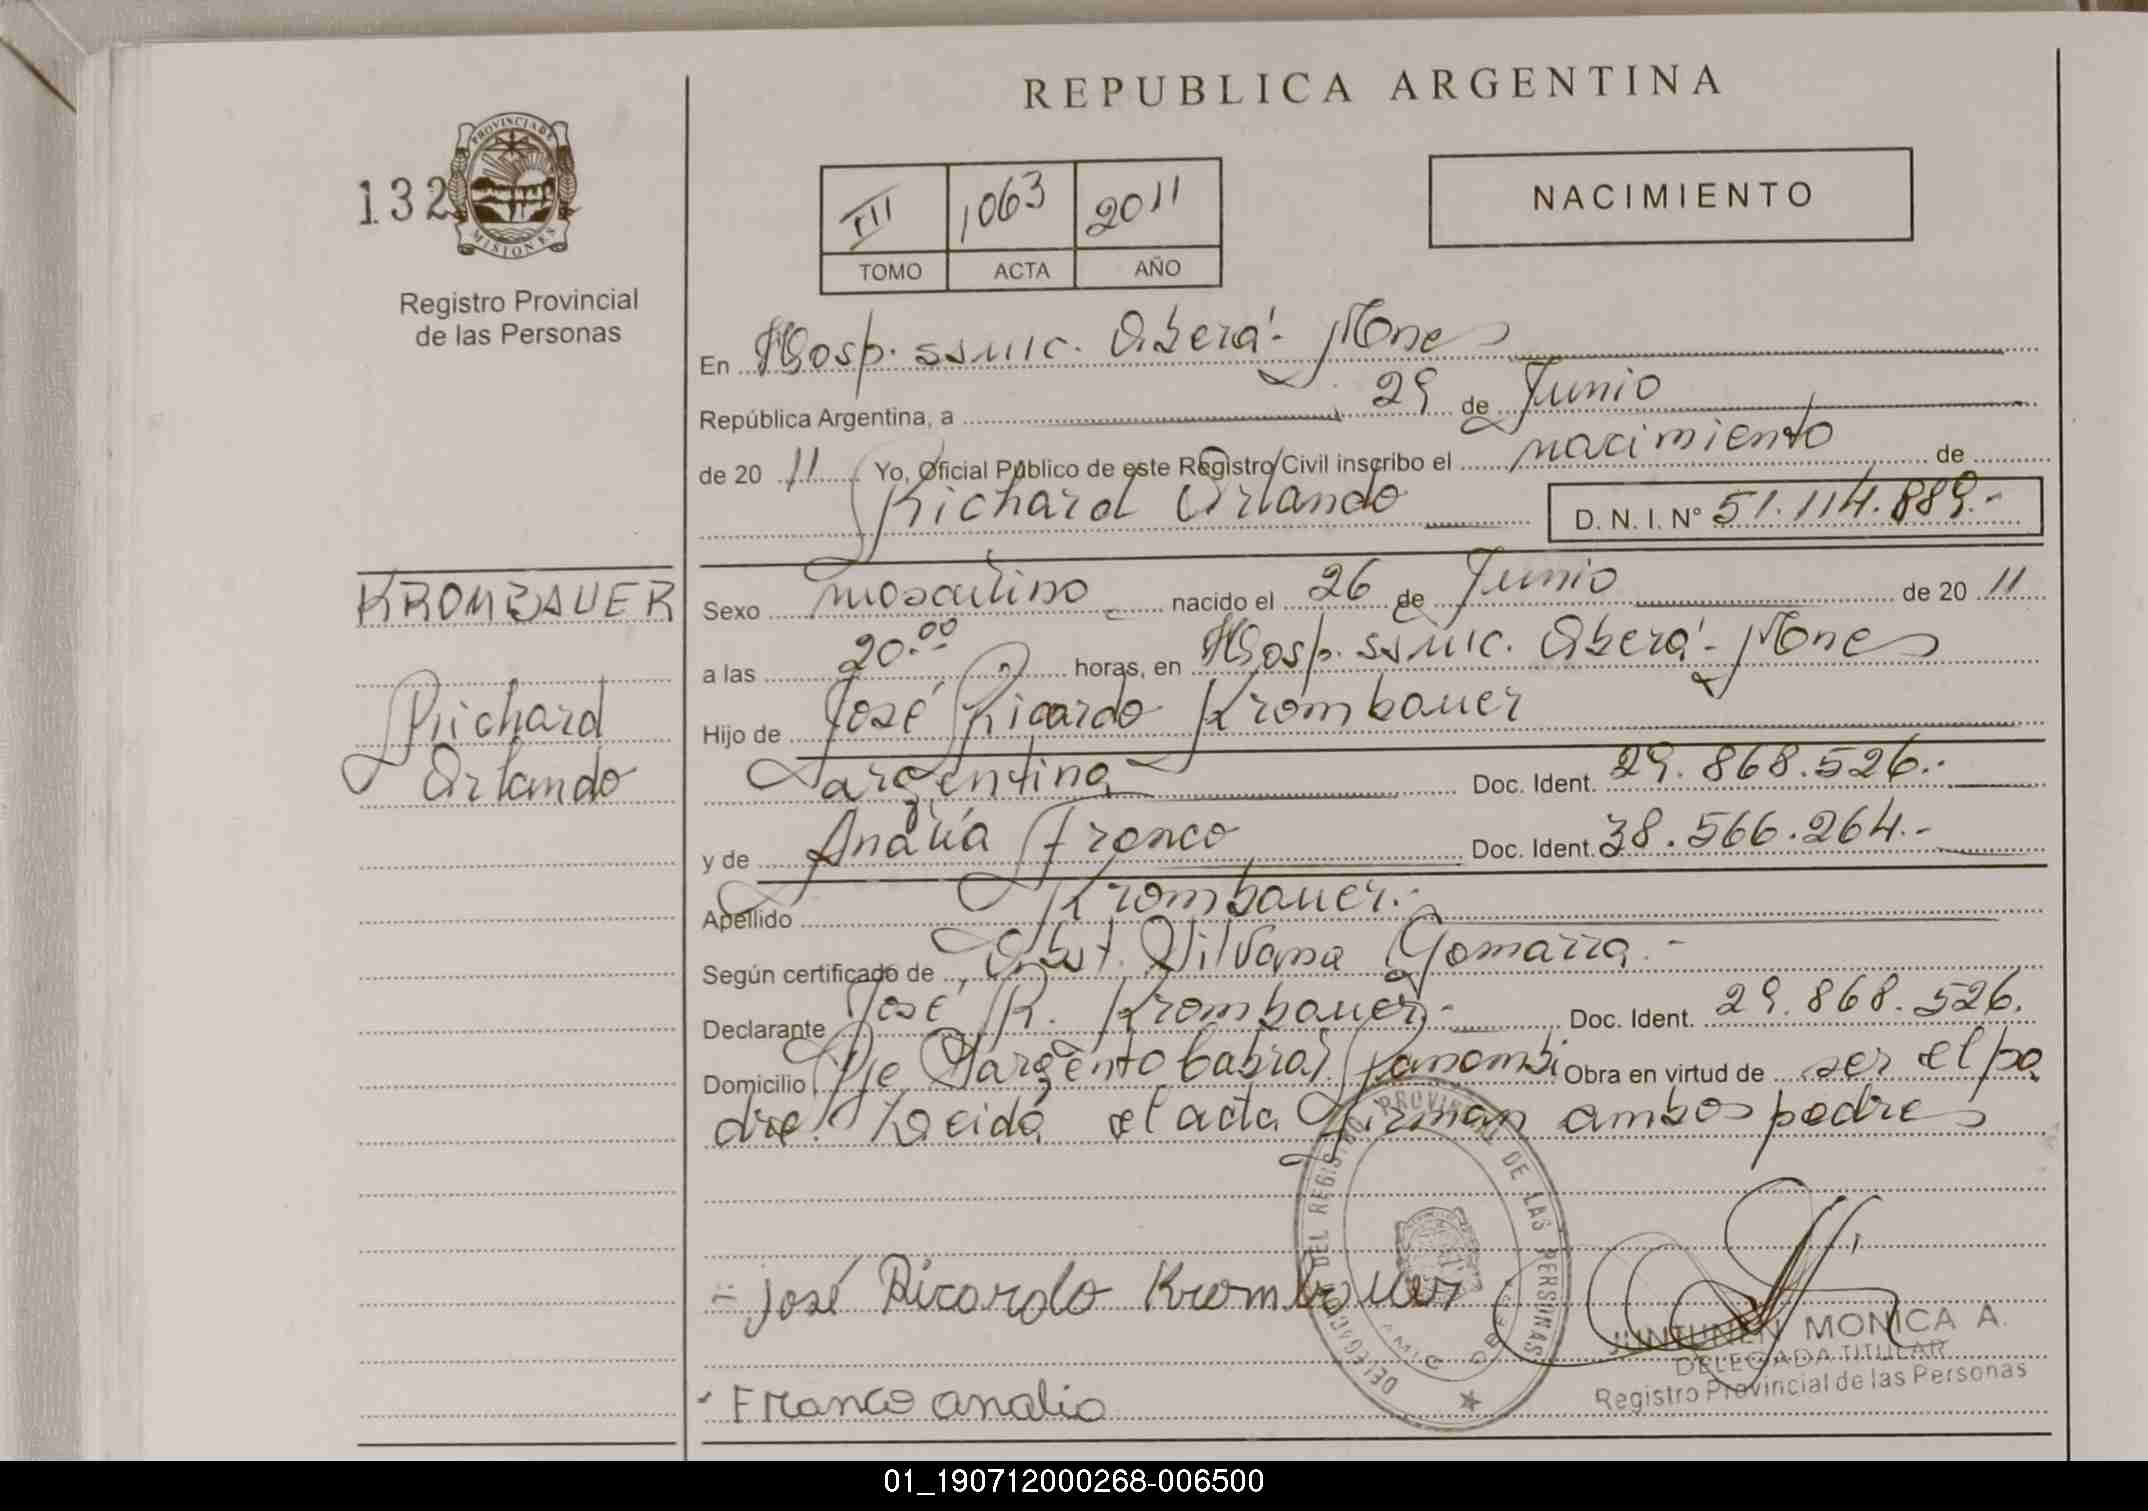 REPUBLICA ARGENTINA
132
PROVINCIA DE
MISIONES
Registro Provincial
de las Personas
III 1063 2011
TOMO ACTA AÑO
NACIMIENTO
En Hosp. SSMIC. Oberá - Mnes
República Argentina, a 29 de Junio
de 20 11 Yo, Oficial Público de este Registro Civil inscribo el nacimiento de
Richard Orlando D. N. I. N° 51.114.889.-
KROMBAUER
Richard
Orlando
Sexo masculino nacido el 26 de Junio de 20 11
a las 20.00 horas, en Hosp. SSMIC. Oberá - Mnes
Hijo de José Ricardo Krombauer
argentina Doc. Ident. 29.868.526.-
y de Analía Franco Doc. Ident. 38.566.264.-
Apellido Krombauer.-
Según certificado de Obst. Silvana Gomarra.-
Declarante José R. Krombauer.- Doc. Ident. 29.868.526.
Domicilio Pje Sargento Cabral Panambí Obra en virtud de ser el pa
dre. Leída el acta firman ambos padres
- José Ricardo Krombauer
Franco analia
DELEGACION DEL REGISTRO PROVINCIAL DE LAS PERSONAS
JUNTUNEN MONICA A.
DELEGADA TITULAR
Registro Provincial de las Personas
01_190712000268-006500